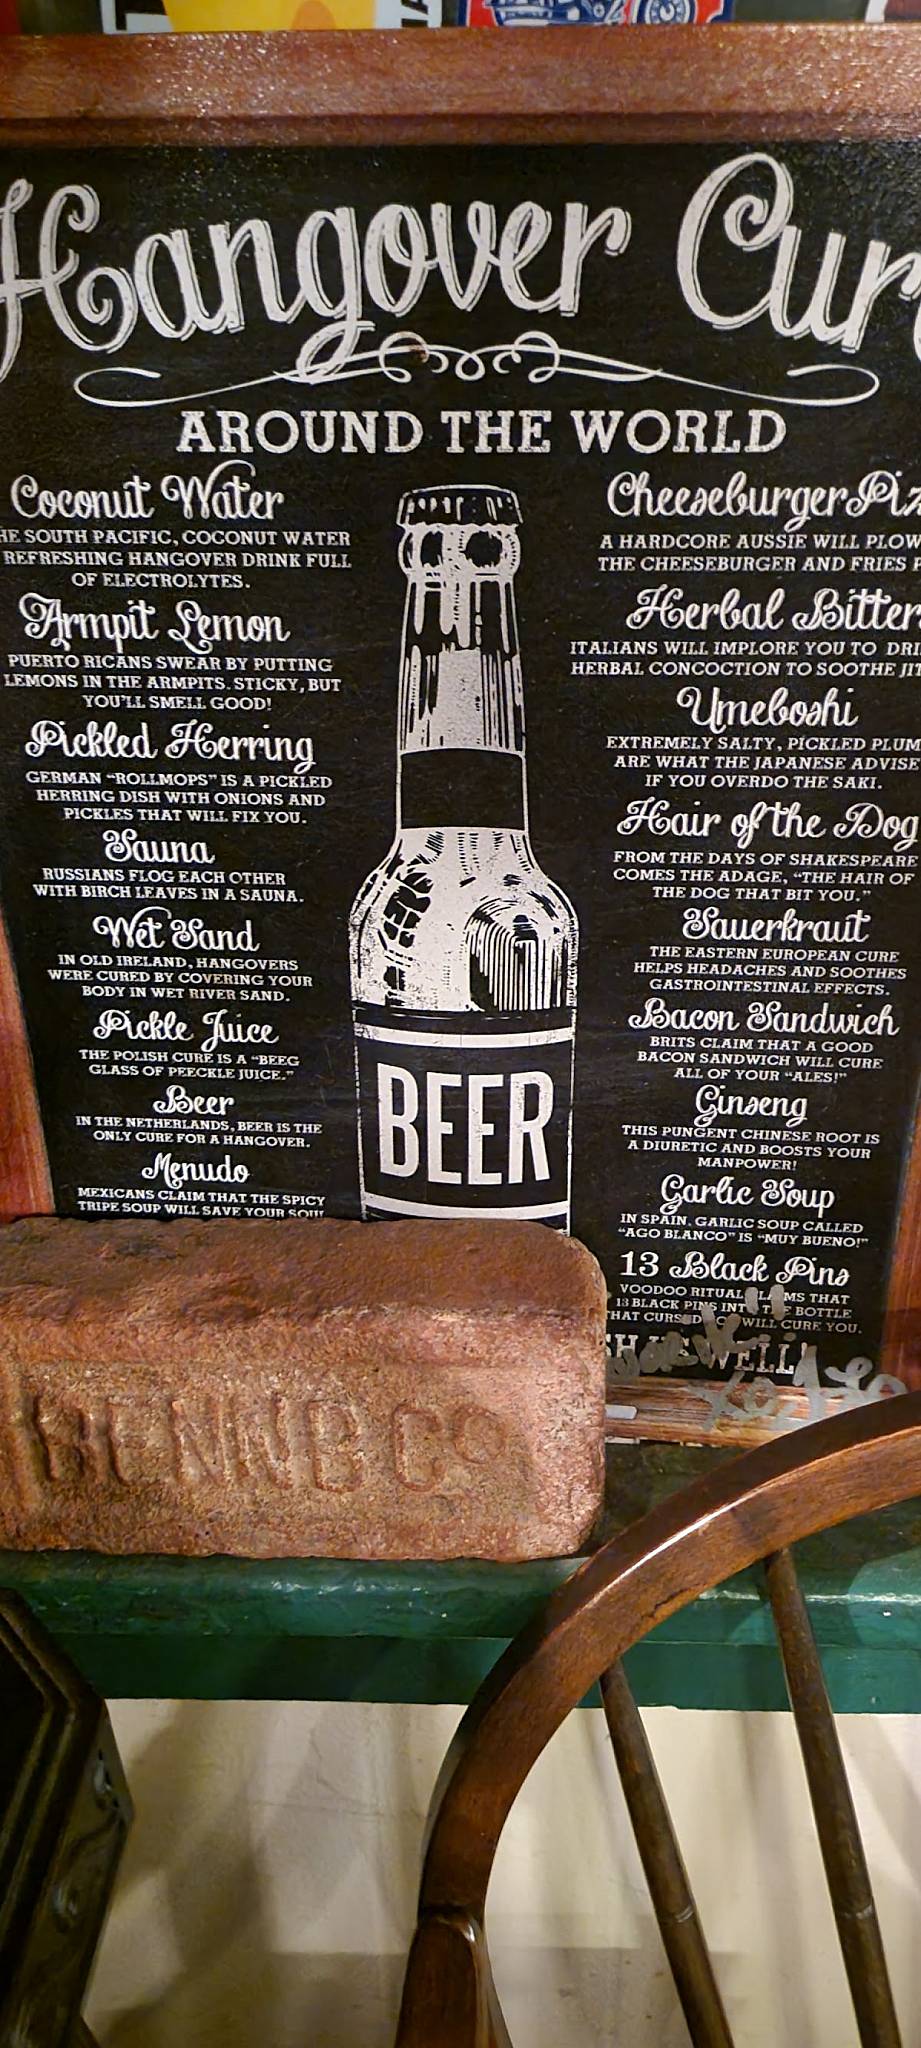 Hangover Cur
AROUND THE WORLD
Coconut Water
HE SOUTH PACIFIC, COCONUT WATER
REFRESHING HANGOVER DRINK FULL
OF ELECTROLYTES.
Armpit Lemon
PUERTO RICANS SWEAR BY PUTTING
LEMONS IN THE ARMPITS. STICKY, BUT
YOU'LL SMELL GOOD!
Pickled Herring
GERMAN "ROLLMOPS" IS A PICKLED
HERRING DISH WITH ONIONS AND
PICKLES THAT WILL FIX YOU.
Sauna
RUSSIANS FLOG EACH OTHER
WITH BIRCH LEAVES IN A SAUNA.
Wet Sand
IN OLD IRELAND, HANGOVERS
WERE CURED BY COVERING YOUR
BODY IN WET RIVER SAND.
Pickle Juice
THE POLISH CURE IS A "BEEG
GLASS OF PEECKLE JUICE."
Beer
IN THE NETHERLANDS, BEER IS THE
ONLY CURE FOR A HANGOVER.
Menudo
MEXICANS CLAIM THAT THE SPICY
TRIPE SOUP WILL SAVE YOUR SOUL
BEER
Cheeseburger Piz
A HARDCORE AUSSIE WILL PLOW
THE CHEESEBURGER AND FRIES P
Herbal Bitter
ITALIANS WILL IMPLORE YOU TO DRI
HERBAL CONCOCTION TO SOOTHE JIT
Umeboshi
EXTREMELY SALTY, PICKLED PLUM
ARE WHAT THE JAPANESE ADVISE
IF YOU OVERDO THE SAKI.
Hair of the Dog
FROM THE DAYS OF SHAKESPEARE
COMES THE ADAGE, "THE HAIR OF
THE DOG THAT BIT YOU."
Sauerkraut
THE EASTERN EUROPEAN CURE
HELPS HEADACHES AND SOOTHES
GASTROINTESTINAL EFFECTS.
Bacon Sandwich
BRITS CLAIM THAT A GOOD
BACON SANDWICH WILL CURE
ALL OF YOUR "ALES!"
Ginseng
THIS PUNGENT CHINESE ROOT IS
A DIURETIC AND BOOSTS YOUR
MANPOWER!
Garlic Soup
IN SPAIN, GARLIC SOUP CALLED
"AGO BLANCO" IS "MUY BUENO!"
13 Black Pins
VOODOO RITUAL CLAIMS THAT
13 BLACK PINS INTO THE BOTTLE
THAT CURSED YOU WILL CURE YOU.
WELL!
BENN B Co